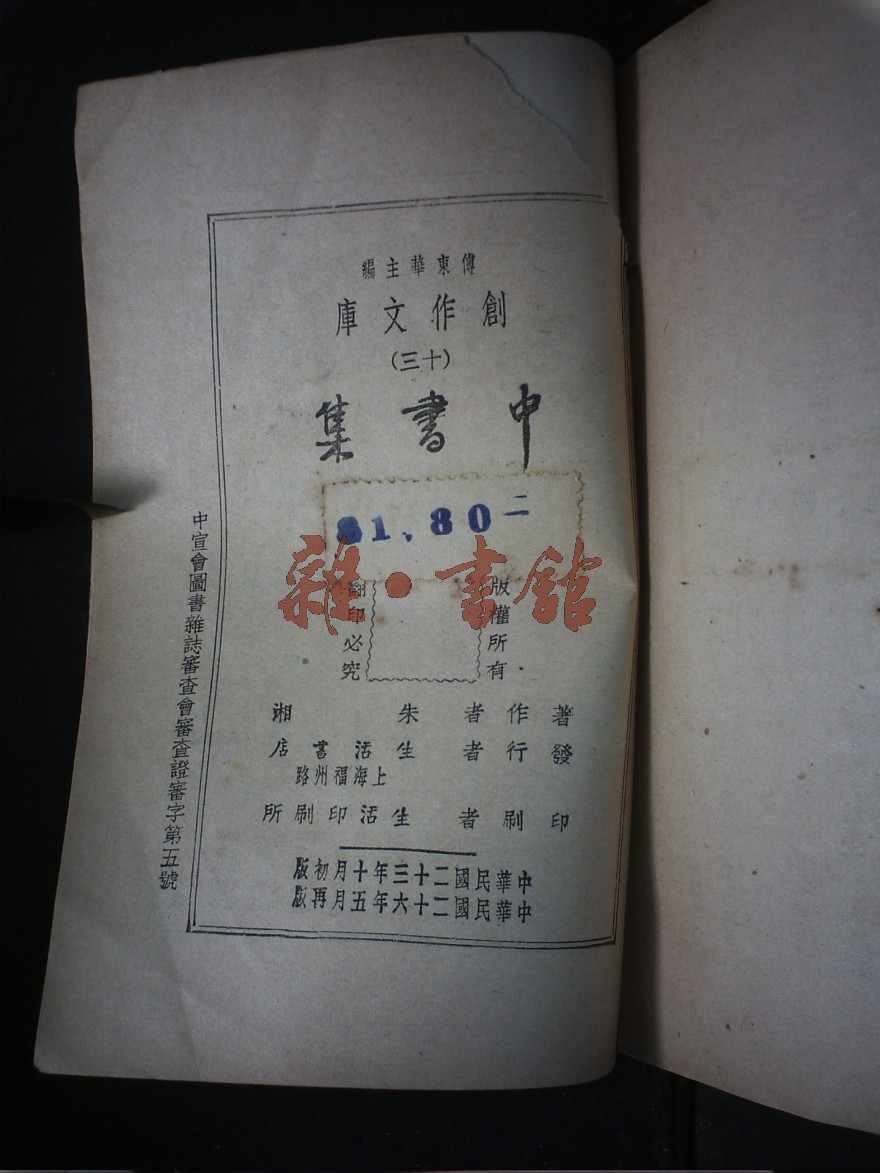 傅東華主編
創作文庫
(十三)
中書集
81.80二
雜·書館
版權所有
翻印必究
著作者 朱湘
發行者 生活書店
上海福州路
印刷者 生活印刷所
中華民國二十三年十月初版
中華民國二十六年五月再版
中宣會圖書雜誌審查會審查證審字第五號